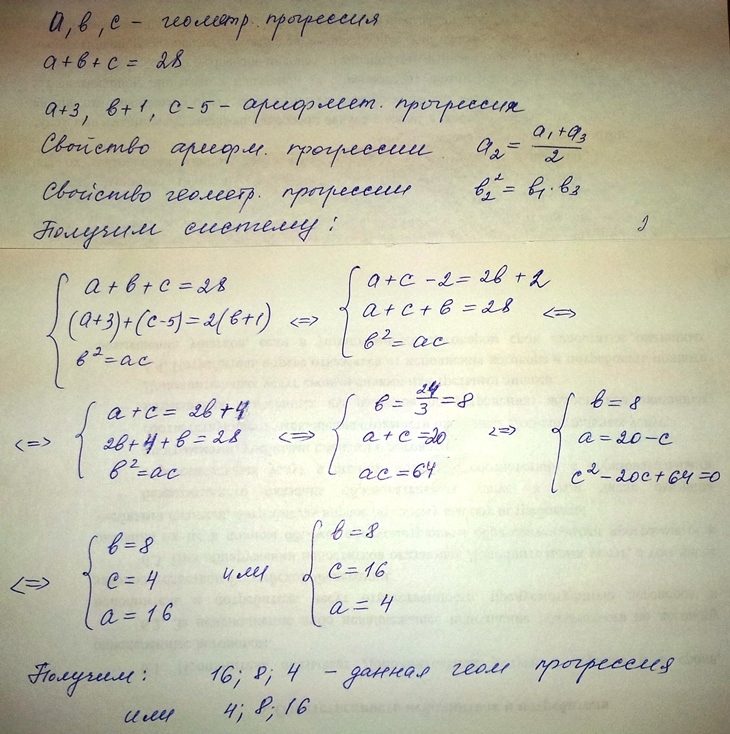 a, b, c - геометр. прогрессия
a+b+c = 28
a+3, b+1, c-5 - арифмет. прогрессия
Свойство арифм. прогрессии a₂ = (a₁+a₃)/2
Свойство геометр. прогрессии b₂² = b₁·b₃
Получим систему:
{ a+b+c=28
(a+3)+(c-5)=2(b+1)
b²=ac
<=> { a+c-2=2b+2
a+c+b=28
b²=ac
<=>
<=> { a+c=2b+4
2b+4+b=28
b²=ac
<=> { b=24/3=8
a+c=20
ac=64
<=> { b=8
a=20-c
c²-20c+64=0
<=> { b=8
c=4
a=16
или { b=8
c=16
a=4
Получим: 16; 8; 4 - данная геом прогрессия
или 4; 8; 16